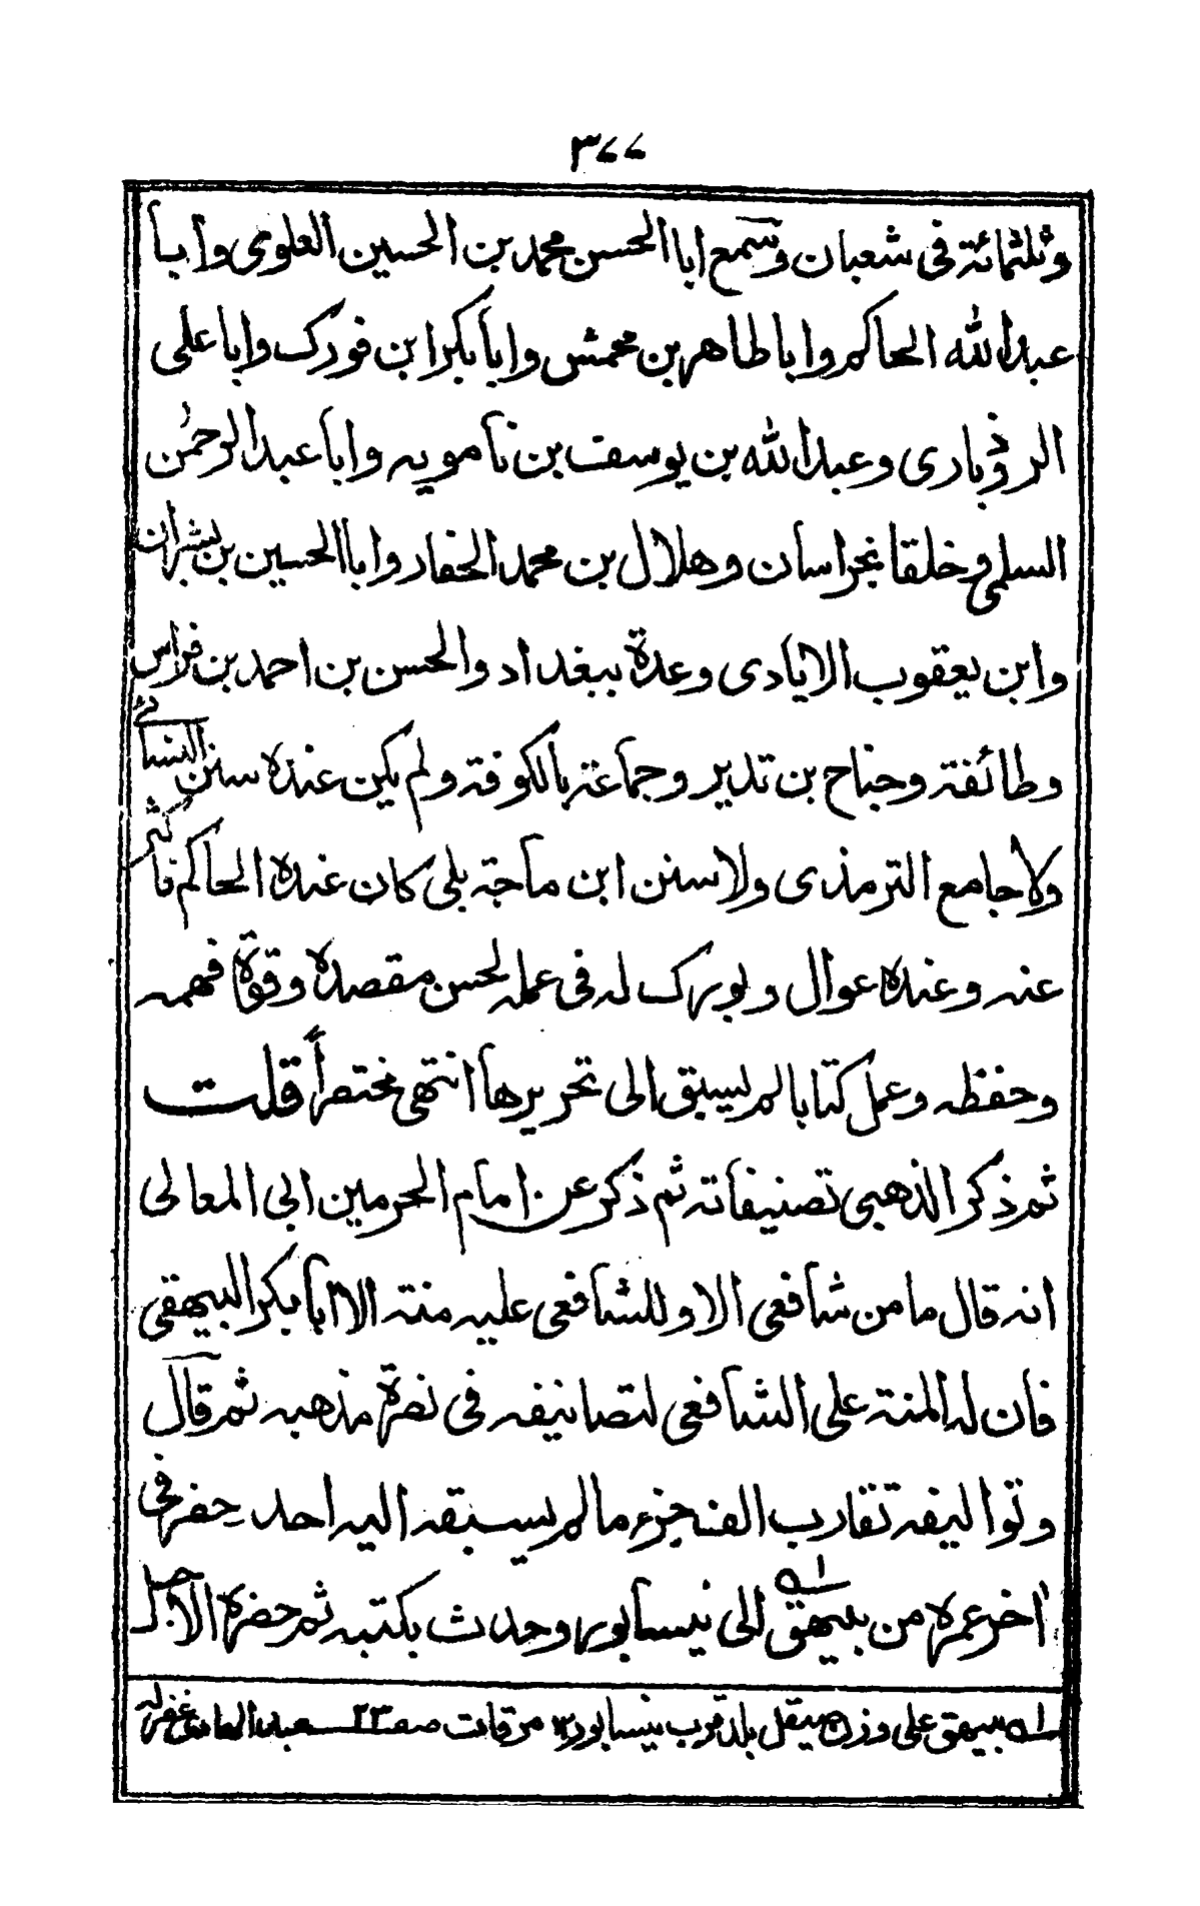 ٣٧٧
وثلثمائة فى شعبان وسمع ابا الحسن محمد بن الحسين العلوى وابا
عبد الله الحاكم وابا طاهر بن محمش وابا بكر ابن فورك وابا على
الروذبارى وعبد الله بن يوسف بن نامويه وابا عبد الرحمٰن
السلمى وخلقا بخراسان وهلال بن محمد الحفار وابا الحسين بن بشران
وابن يعقوب الايادى وعدة ببغداد والحسن بن احمد بن فراس
وطائفة وجناح بن تذير وجماعة بالكوفة ولم يكن عنده سنن النسائى
ولا جامع الترمذى ولا سنن ابن ماجة بلى كان عنده الحاكم فاكثر
عنه وعنده عوال وبورك له فى عمله لحسن مقصده وقوة فهمه
وحفظه وعمل كتابا لم يسبق الى تحريرها انتهى مختصراً قلت
ثم ذكر الذهبى تصنيفاته ثم ذكر عن امام الحرمين ابى المعالى
انه قال ما من شافعى الا وللشافعى عليه منة الا ابا بكر البيهقى
فان له المنة على الشافعى لتصانيفه فى نصرة مذهبه ثم قال
وتواليفه تقارب الف جزء ما لم يسبقه اليه احد حضر فى
اٰخر عمره من بيهق اه الى نيسابور وحدث بكتبه ثم حضره الاجل
اه بيهق على وزن صيقل بلد قرب نيسابور ١٢ مرقات صفه ٢٣ عبد العاصى غفرله